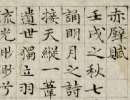 赤壁賦
壬戌之秋七
誦明月之詩
接天縱一葦
遺世獨立羽
流光渺渺兮